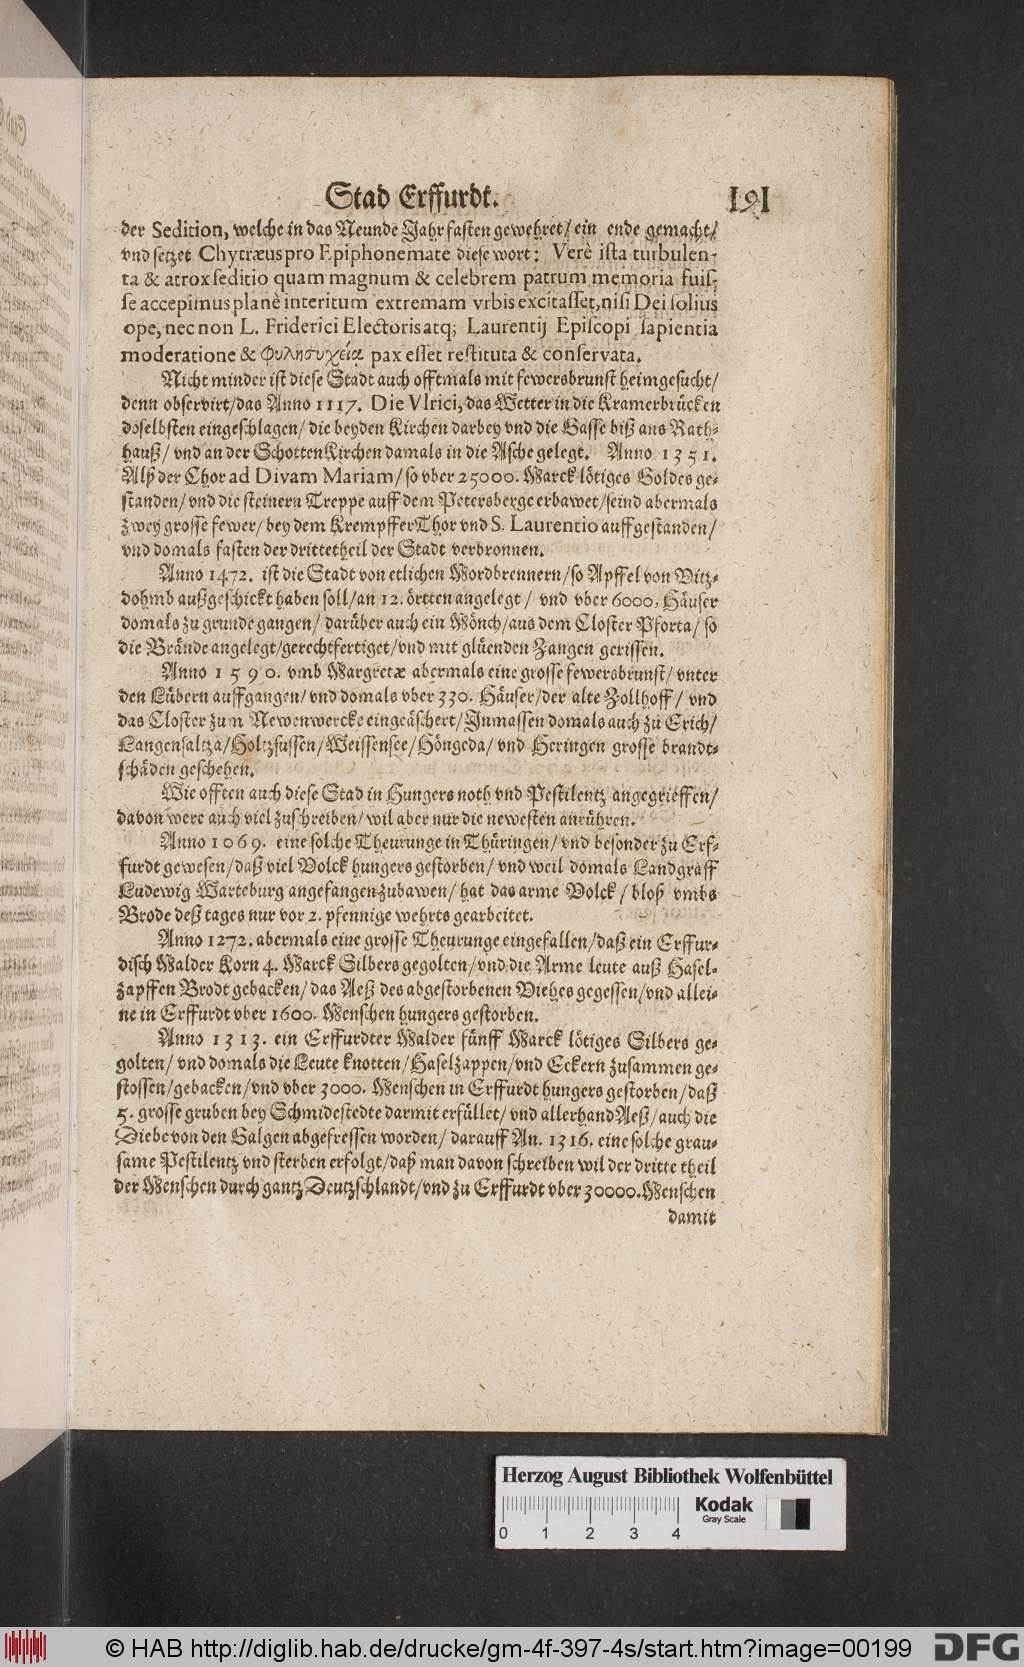 Stad Erffurdt. 191
der Sedition, welche in das Neunde Jahr fasten gewehret/ ein ende gemacht/
vnd setzet Chytræus pro Epiphonemate diese wort: Verè ista turbulen-
ta & atrox seditio quam magnum & celebrem patrum memoria fuis-
se accepimus planè interitum extremam vrbis excitasset, nisi Dei solius
ope, nec non L. Friderici Electoris atq; Laurentij Episcopi sapientia
moderatione & Φυλησυχείᾳ pax esset restituta & conservata.
Nicht minder ist diese Stadt auch offtmals mit fewersbrunst heimgesucht/
denn observirt/ das Anno 1117. Die Vlrici, das Wetter in die Kramerbrücken
doselbsten eingeschlagen/ die beyden Kirchen darbey vnd die Gasse biß ans Rath-
hauß/ vnd an der Schotten Kirchen damals in die Asche gelegt. Anno 1351.
Alß der Chor ad Divam Mariam/ so vber 25000. Marck lötiges Goldes ge-
standen/ vnd die steinern Treppe auff dem Petersberge erbawet/ seind abermals
zwey grosse fewer/ bey dem Krempffer Thor vnd S. Laurentio auffgestanden/
vnd domals fasten der drittetheil der Stadt verbronnen.
Anno 1472. ist die Stadt von etlichen Mordbrennern/ so Apffel von Vitz-
dohmb außgeschickt haben soll/ an 12. örtten angelegt/ vnd vber 6000. Häuser
domals zu grunde gangen/ darüber auch ein Mönch/ aus dem Closter Pforta/ so
die Brände angelegt/ gerechtfertiget/ vnd mit glüenden Zangen gerissen.
Anno 1590. vmb Margretæ abermals eine grosse fewersbrunst/ vnter
den Lübern auffgangen/ vnd domals vber 330. Häuser/ der alte Zollhoff/ vnd
das Closter zum Newenwercke eingeäschert/ Inmassen domals auch zu Erich/
Langensaltza/ Holtzsussen/ Weissensee/ Höngeda/ vnd Heringen grosse brandt-
schäden geschehen.
Wie offten auch diese Stad in Hungers noth vnd Pestilentz angegrieffen/
davon were auch viel zuschreiben/ wil aber nur die newesten anrühren.
Anno 1069. eine solche Theurunge in Thüringen/ vnd besonder zu Erf-
furdt gewesen/ daß viel Volck hungers gestorben/ vnd weil domals Landgraff
Ludewig Warteburg angefangen zubawen/ hat das arme Volck/ bloß vmbs
Brode deß tages nur vor 2. pfennige wehrts gearbeitet.
Anno 1272. abermals eine grosse Theurunge eingefallen/ daß ein Erffur-
disch Malder Korn 4. Marck Silbers gegolten/ vnd die Arme leute auß Hasel-
zapffen Brodt gebacken/ das Aeß des abgestorbenen Viehes gegessen/ vnd allei-
ne in Erffurdt vber 1600. Menschen hungers gestorben.
Anno 1313. ein Erffurdter Malder fünff Marck lötiges Silbers ge-
golten/ vnd domals die Leute knotten/ Haselzappen/ vnd Eckern zusammen ge-
stossen/ gebacken/ vnd vber 3000. Menschen in Erffurdt hungers gestorben/ daß
5. grosse gruben bey Schmidestedte darmit erfüllet/ vnd allerhand Aeß/ auch die
Diebe von den Galgen abgefressen worden/ darauff An. 1316. eine solche grau-
same Pestilentz vnd sterben erfolgt/ daß man davon schreiben wil der dritte theil
der Menschen durch gantz Deutzschlandt/ vnd zu Erffurdt vber 30000. Menschen
damit
Herzog August Bibliothek Wolfenbüttel
0 1 2 3 4
Kodak
Gray Scale
© HAB http://diglib.hab.de/drucke/gm-4f-397-4s/start.htm?image=00199
DFG